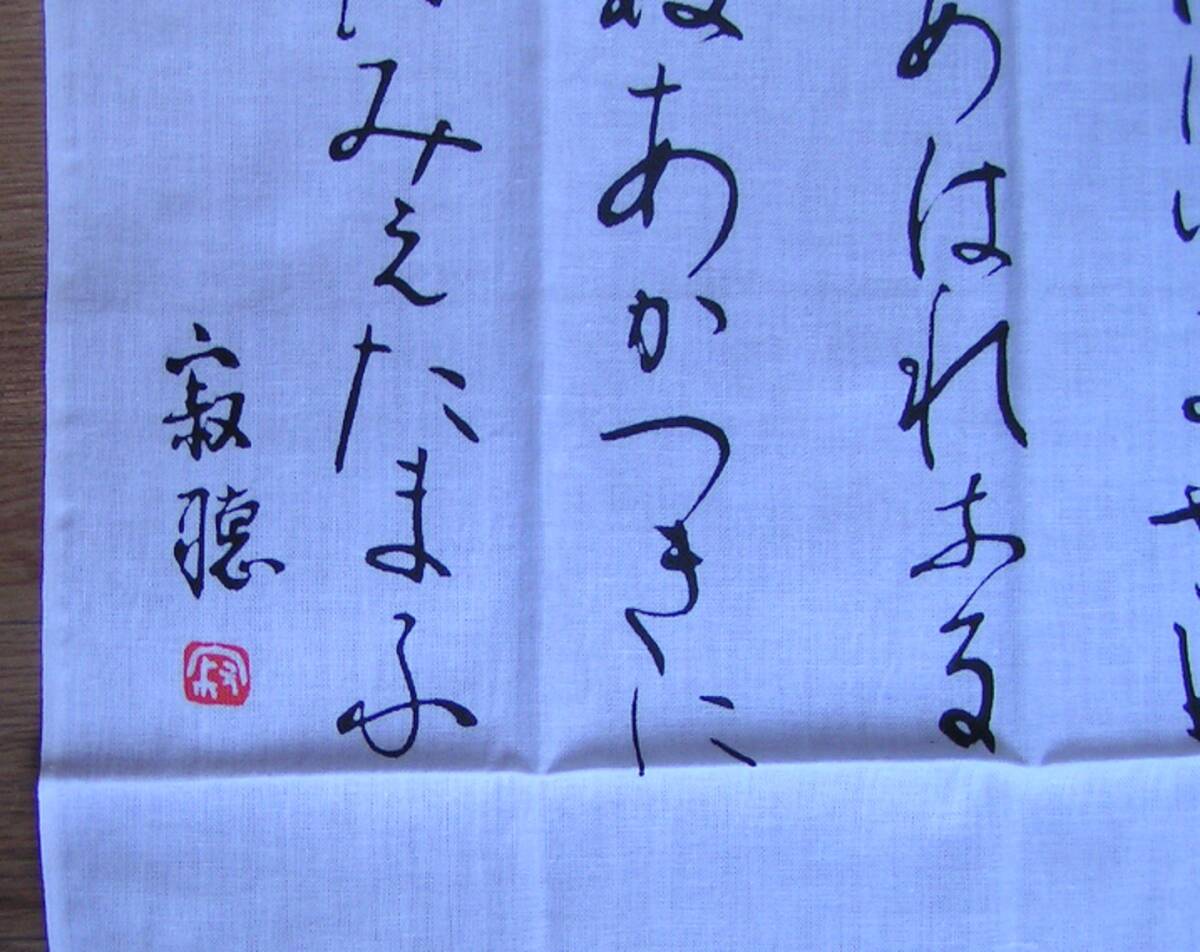 あはれなる
あかつきに
みえたまふ
寂聴
寂